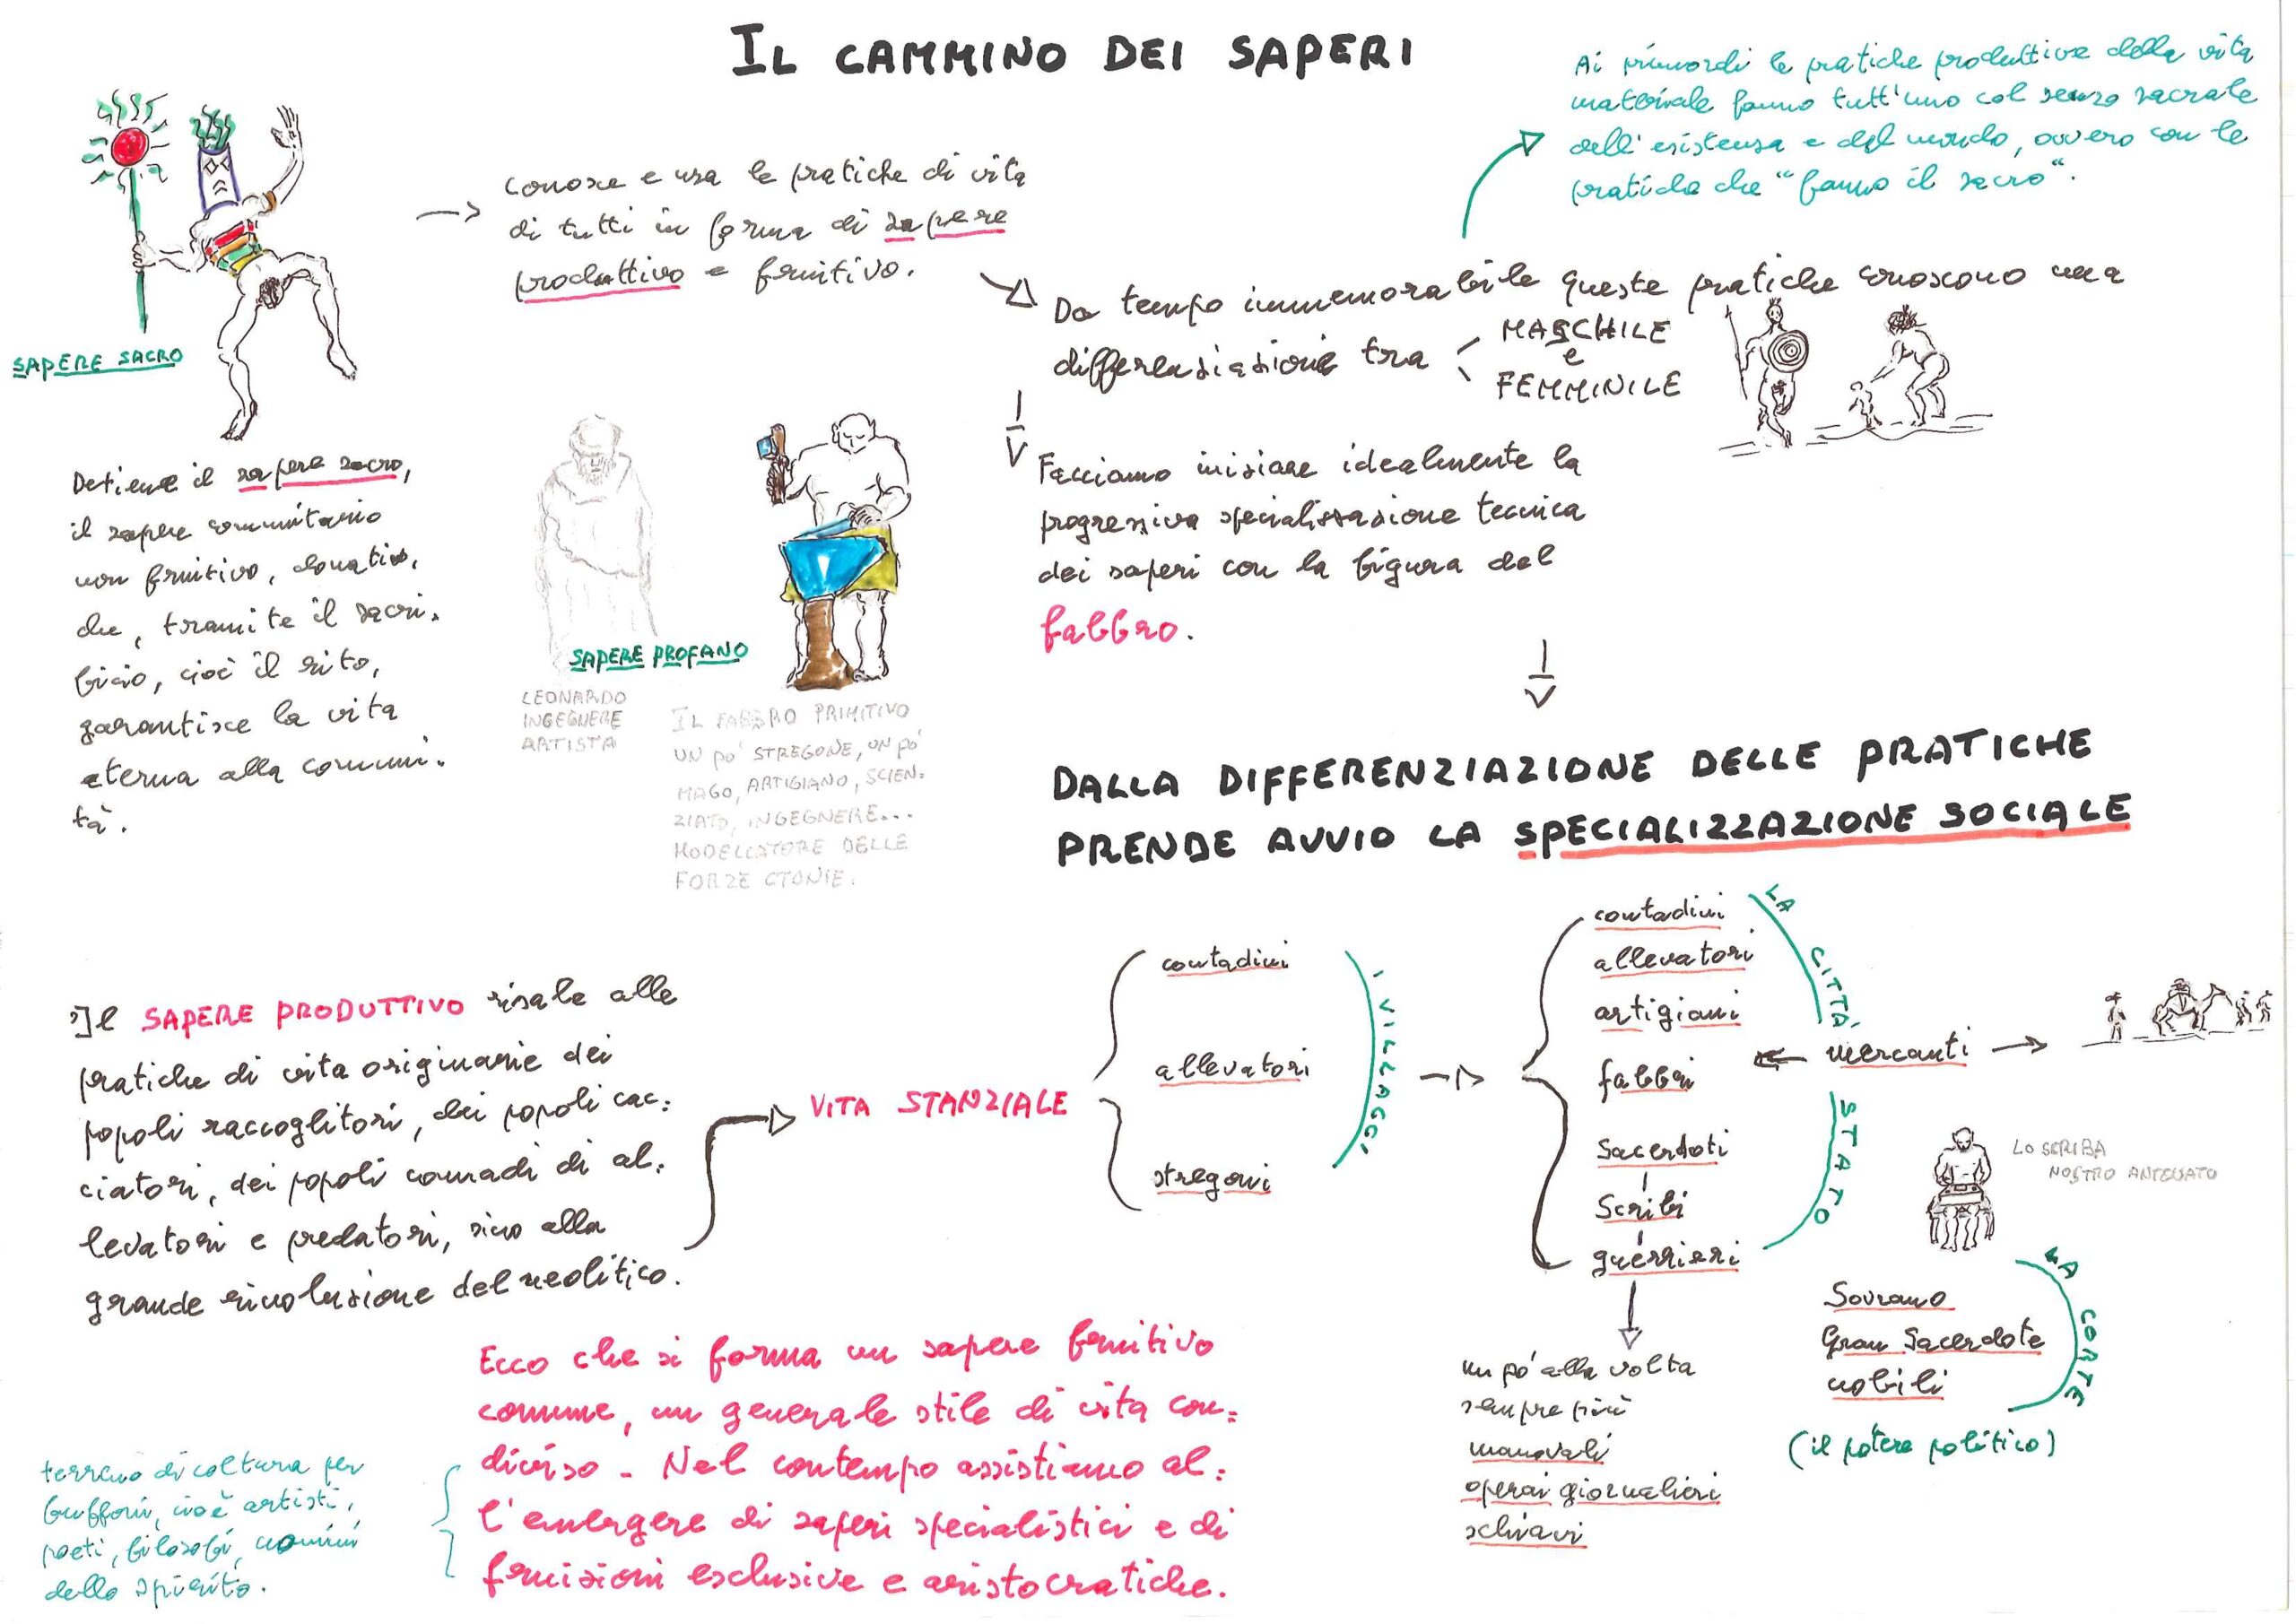 IL CAMMINO DEI SAPERI
Ai primordi le pratiche produttive della vita
materiale fanno tutt'uno col senso sacrale
dell'esistenza e del mondo, ovvero con le
pratiche che "fanno il sacro".
SAPERE SACRO
conosce e usa le pratiche di vita
di tutti in forma di sapere
produttivo e fruitivo.
Da tempo immemorabile queste pratiche conoscono una
differenziazione tra
MASCHILE
e
FEMMINILE
Detiene il sapere sacro,
il sapere comunitario
non fruitivo, donativo,
che, tramite il sacri.
ficio, cioè il rito,
garantisce la vita
eterna alla comuni.
tà.
SAPERE PROFANO
LEONARDO
INGEGNERE
ARTISTA
IL FABBRO PRIMITIVO
UN PO' STREGONE, UN PO'
MAGO, ARTIGIANO, SCIEN.
ZIATO, INGEGNERE...
MODELLATORE DELLE
FORZE CTONIE.
Facciamo iniziare idealmente la
progressiva specializzazione tecnica
dei saperi con la figura del
fabbro.
DALLA DIFFERENZIAZIONE DELLE PRATICHE
PRENDE AVVIO LA SPECIALIZZAZIONE SOCIALE
Il SAPERE PRODUTTIVO risale alle
pratiche di vita originarie dei
popoli raccoglitori, dei popoli cac:
ciatori, dei popoli nomadi di al.
levatori e predatori, sino alla
grande rivoluzione del neolitico.
VITA STANZIALE
contadini
allevatori
stregoni
I VILLAGGI
contadini
allevatori
artigiani
fabbri
Sacerdoti
Scribi
guerrieri
LA CITTÀ
STATO
mercanti
LO SCRIBA
NOSTRO ANTENATO
Sovrano
Gran Sacerdote
nobili
LA CORTE
(il potere politico)
un pò alla volta
sempre più
manovali
operai giornalieri
schiavi
Ecco che si forma un sapere fruitivo
comune, un generale stile di vita con=
diviso - Nel contempo assistiamo al:
l'emergere di saperi specialistici e di
fruizioni esclusive e aristocratiche.
terreno di coltura per
buffoni, cioè artisti,
poeti, filosofi, uomini
dello spirito.